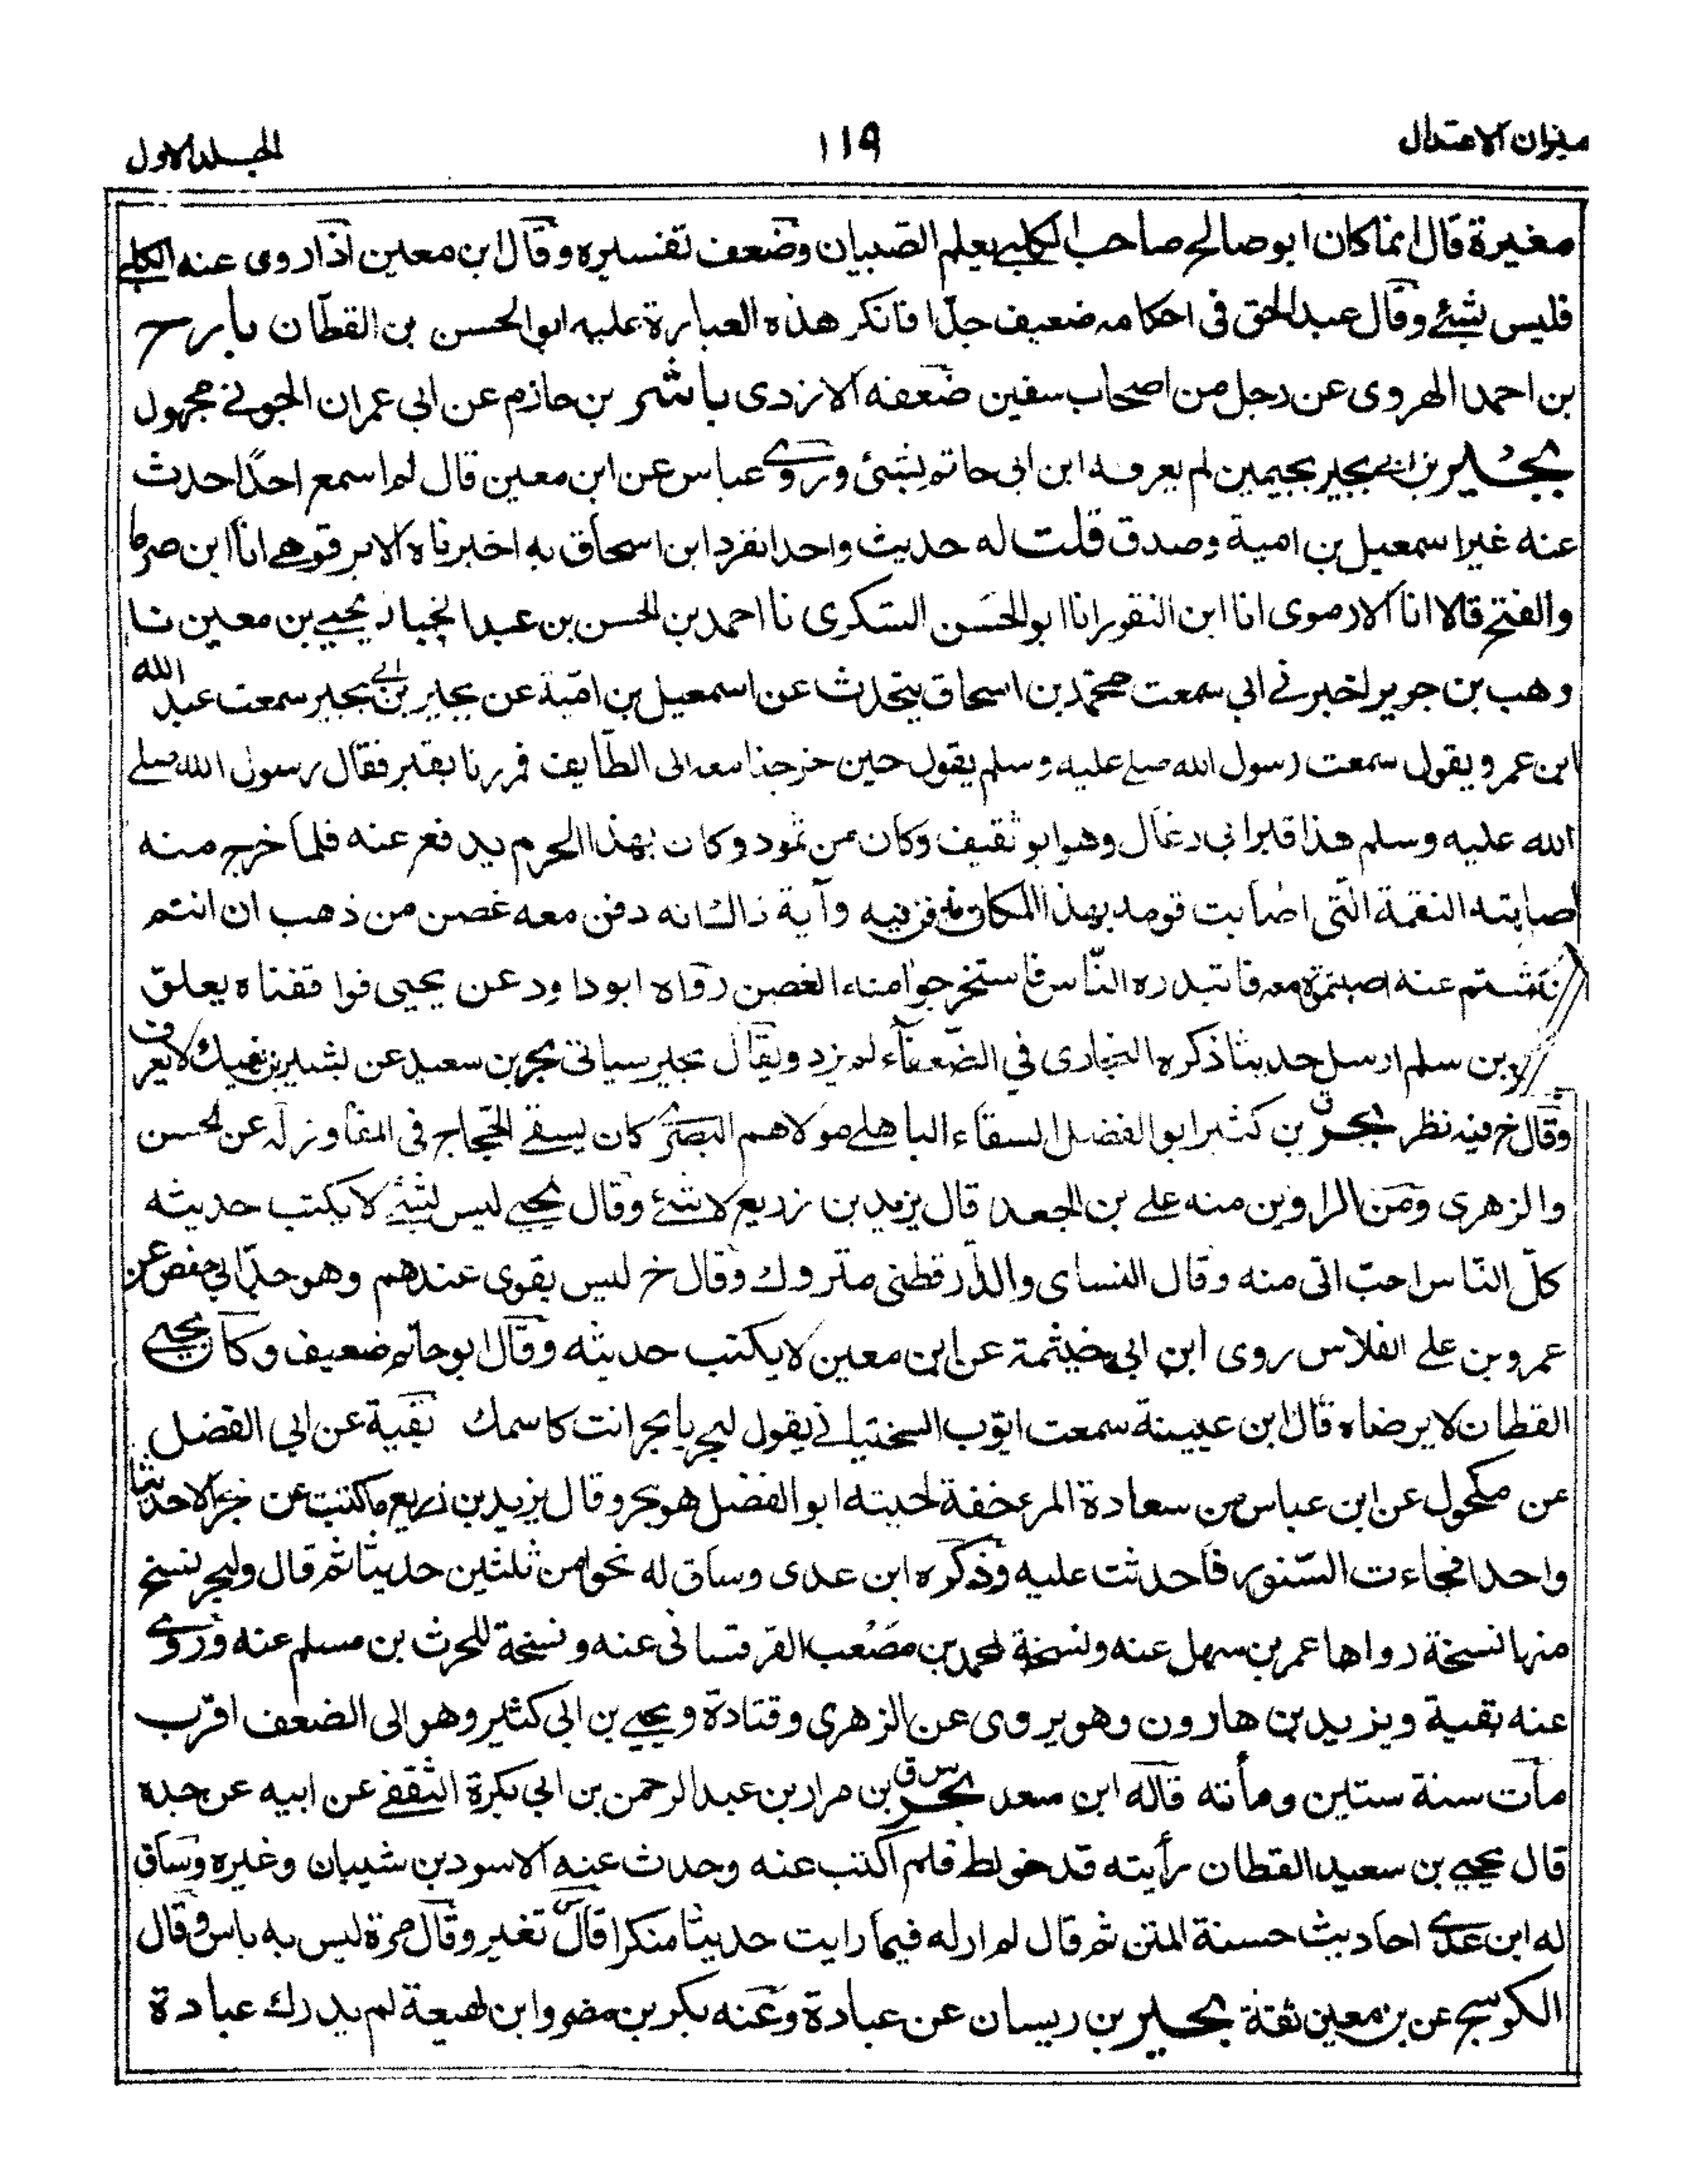 ميزان الاعتدال
١١٩
المجلد الاول
مغيرة قال انما كان ابو صالح صاحب الكلبي يعلم الصبيان وضعف تفسيره وقال ابن معين اذا روى عنه الكلبي
فليس بشئ وقال عبد الحق فى احكامه ضعيف جدّا فانكر هذه العبارة عليه ابو الحسن بن القطّان بارح
بن احمد الهروى عن رجل من اصحاب سفين ضعفه الازدى باشر بن حازم عن ابى عمران الجونے مجهول
بجير بن ابي بجير بجيمين لم يعرفه ابن ابى حاتم بشئ وروى عباس عن ابن معين قال لم اسمع احدًا حدث
عنه غير اسمعيل بن امية وصدق قلت له حديث واحد انفرد ابن اسحاق به اخبرناه الابرقوهے انا ابن صرما
والفتح قالا انا الارموى انا ابن النقور انا ابو الحسن السكرى نا احمد بن الحسن بن عبد الجبار نا يحيى بن معين نا
وهب بن جرير اخبرنے ابى سمعت محمد بن اسحاق يحدث عن اسمعيل بن امية عن بجير بن ابي بجير سمعت عبد الله
ابن عمرو يقول سمعت رسول الله صلے عليه وسلم يقول حين خرجنا معه الى الطايف فمررنا بقبر فقال رسول الله صلے
الله عليه وسلم هذا قبر ابى رغال وهو ابو ثقيف وكان من ثمود وكان بهذا الحرم يدفع عنه فلما خرج منه
اصابته النقمة التى اصابت قومه بهذا المكان فدفن فيه وآية ذلك انه دفن معه غصن من ذهب ان انتم
نبشتم عنه اصبتموه معه فابتدره الناس فاستخرجوا منه الغصن رواه ابو داود عن يحيى فوافقناه يعلق
بن سلم ارسل حديثا ذكره البخارى في الضعفاء لم يزد ويقال بجير سياتى بحر بن سعيد عن بشير بن نهيك لا يعرف
وقال خ فيه نظر بحر ق بن كثير ابو الفضل السقاء الباهلے مولاهم البصرى كان يسقے الحجاج فى المفاوز له عن الحسن
والزهرى ومن الراوين منه علے بن الجعد قال يزيد بن زريع لا شئ وقال يحيى ليس بشئ لا يكتب حديثه
كلّ النّاس احبّ الىّ منه وقال النساى والدارقطنى متروك وقال خ ليس بقوى عندهم وهو جدّ ابى حفص عن
عمرو بن علے الفلاس روى ابن ابى خيثمة عن ابن معين لا يكتب حديثه وقال ابو حاتم ضعيف وكان يحيى
القطان لا يرضاه قال ابن عيينة سمعت ايّوب السختيانے يقول لبحر يا بحر انت كاسمك بقية عن ابى الفضل
عن مكحول عن ابن عباس من سعادة المرء خفة لحيته ابو الفضل هو بحر وقال يزيد بن زريع ما كتبت عن بحر الا حديثا
واحدا فجاءت السّنور فاحدثت عليه وذكره ابن عدى وساق له نحوا من ثلثين حديثا ثم قال ولبحر نسخ
منها نسخة رواها عمر بن سهل عنه ونسخة لمحمد بن مصعب القرقسانى عنه ونسخة للحرث بن مسلم عنه وروى
عنه بقية ويزيد بن هارون وهو يروى عن الزهرى وقتادة ويحيے بن ابى كثير وهو الى الضعف اقرب
مات سنة ستين ومائة قاله ابن سعد بحر س ق بن مرار بن عبد الرحمن بن ابى بكرة الثقفے عن ابيه عن جده
قال يحيے بن سعيد القطان رأيته قد خولط فلم اكتب عنه وحدث عنه الاسود بن شيبان وغيره وساق
له ابن عدى احاديث حسنة المتن ثم قال لم ار له فيما رايت حديثا منكرا قال س تغير وقال مرة ليس به باس وقال
الكوسج عن بن معين ثقة بحير بن ريسان عن عبادة وعنه بكر بن مضر وابن لهيعة لم يدرك عبادة